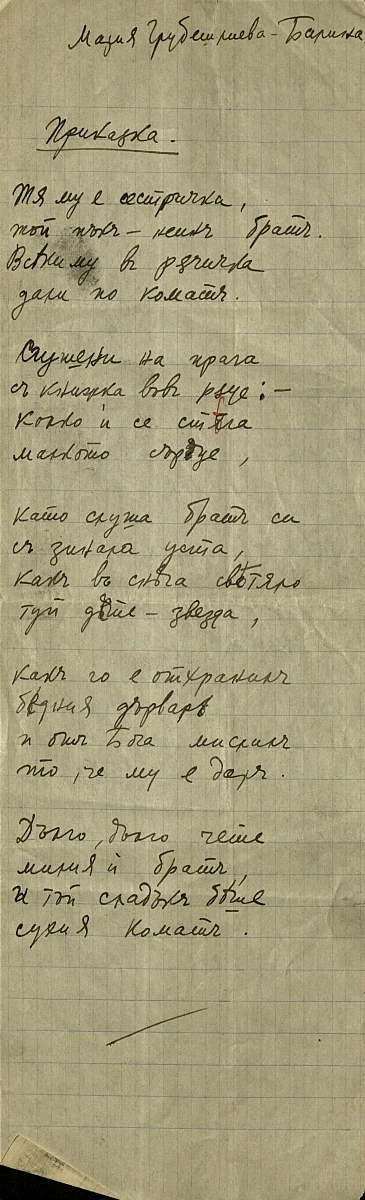 Мария Грубешлиева - Барина
Приказка.
Тя му е сестричка,
той пъкъ – неинъ братъ.
Всѣкиму въ рѫчичка
дали по коматъ.
Сгушени на прага
съ книжка въвъ рѫце: –
колко ѝ се стѣга
малкото сърдце,
като слуша братъ си
съ зинала уста,
какъ въ снѣга свѣтяло
туй дѣте – звезда,
какъ го е отхранилъ
бѣдния дърварь
и билъ Бога мислилъ
что, че му е даръ.
Дълго, дълго чете
милия ѝ братъ,
И той сладъкъ бѣше
сухия коматъ.